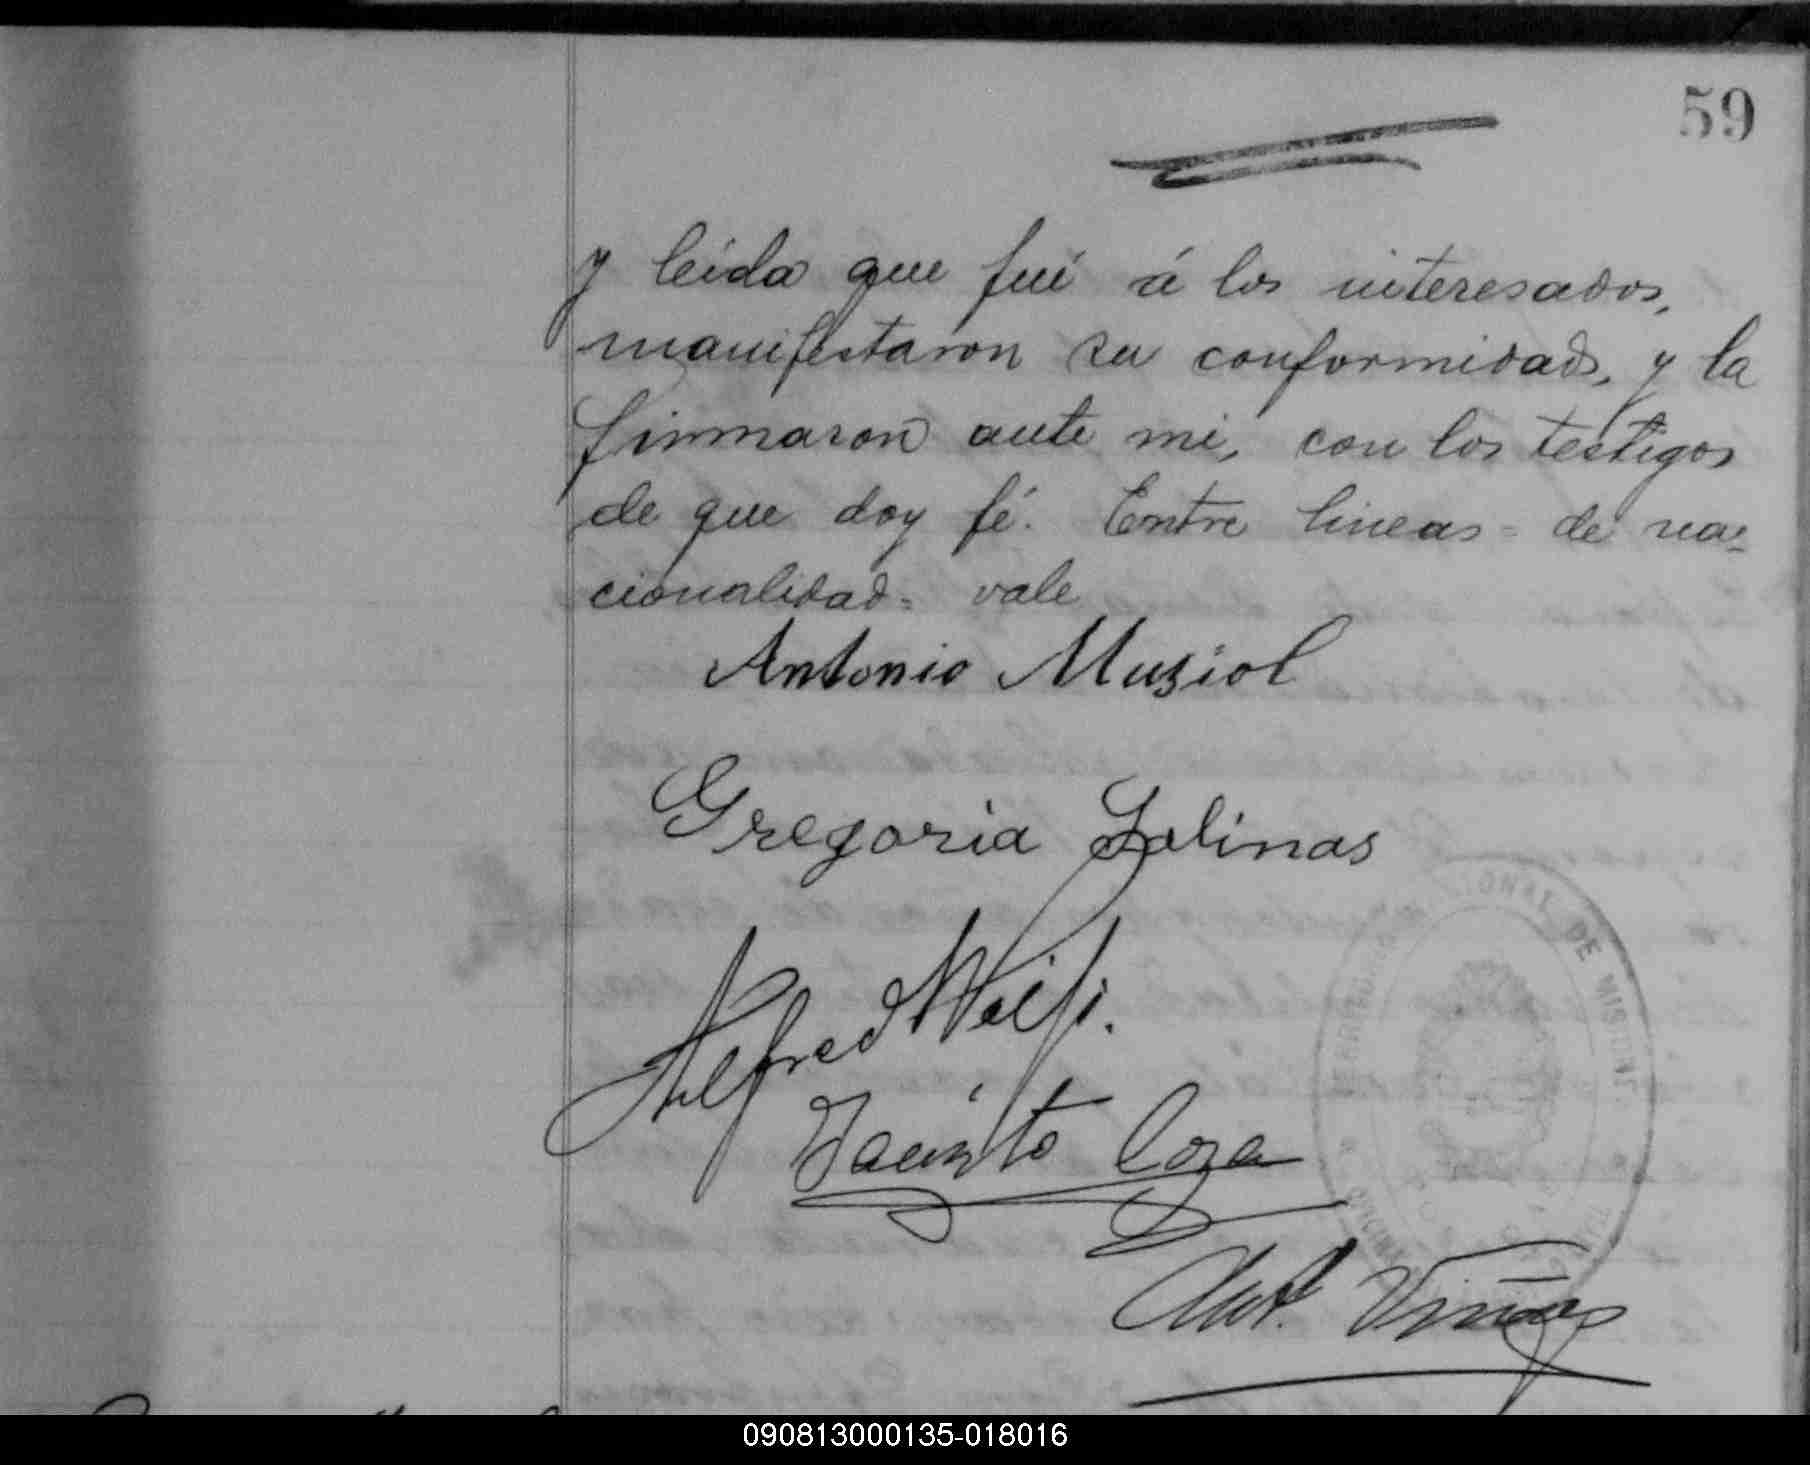 59
y leida que fué á los interesados,
manifestaron su conformidad, y la
firmaron ante mi, con los testigos
de que doy fé. Entre lineas = de na=
cionalidad = vale
Antonio Musiol
Gregoria Salinas
Alfred
Jacinto Coza
Ant. Viñas
TERRITORIO NACIONAL DE MISIONES
090813000135-018016